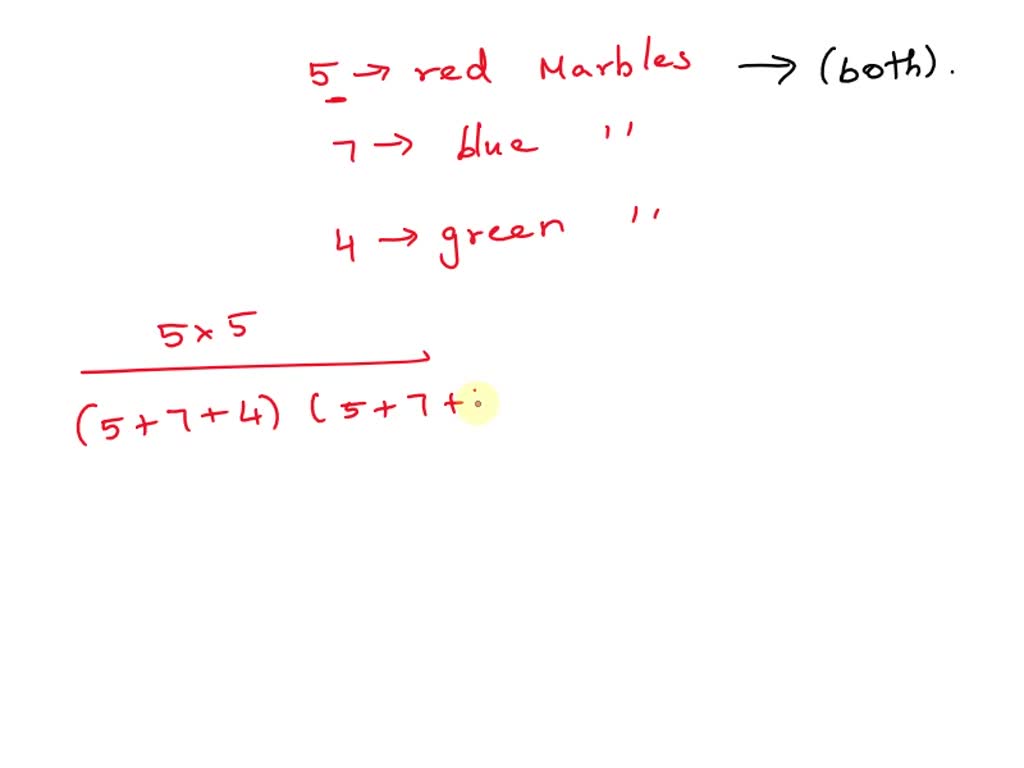 5 → red Marbles → (both).
7 → blue ''
4 → green ''
5 × 5
(5 + 7 + 4) (5 + 7 +